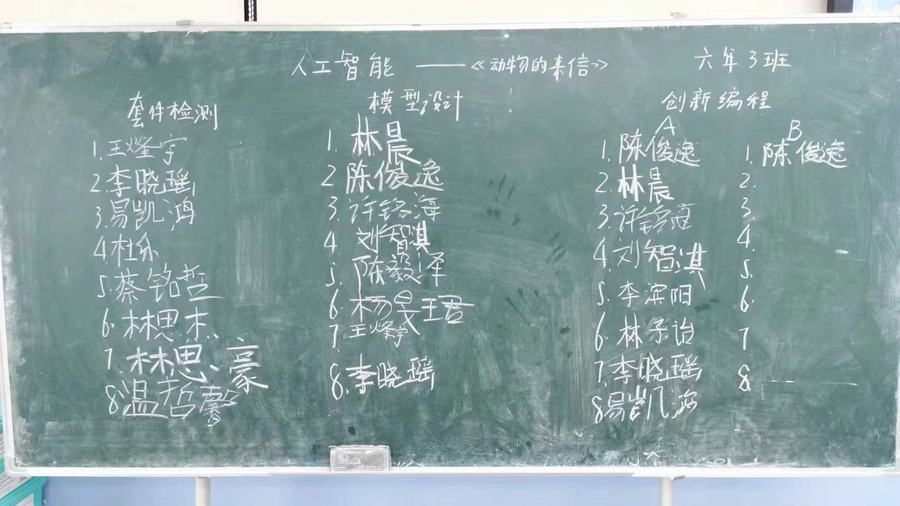 人工智能 ——《动物的来信》 六年3班
套件检测
1.王燈宇
2.李晓瑶
3.易凯鸿
4.杜乐
5.蔡铭哲
6.林思杰
7.林思豪
8.温哲馨
模型设计
1.林晨
2.陈俊逸
3.许铭海
4.刘智淇
5.陈毅泽
6.杨昊王君
7.王燈宇
8.李晓瑶
创新编程
A
1.陈俊逸
2.林晨
3.许铭海
4.刘智淇
5.李滨阳
6.林子诒
7.李晓瑶
8.易凯鸿
B
1.陈俊逸
2.
3.
4.
5.
6.
7
8.